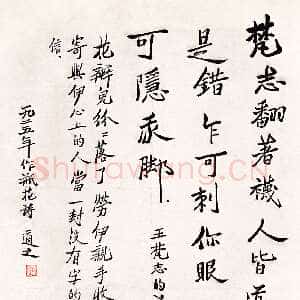 梵志翻著襪人皆
是錯乍可刺你眼
可隱我脚
王梵志的
花瓣兒紛〻落了勞伊親手收
寄與伊心上的人當一封沒有字的
信
一九二五年作瓶花詩 適之
Shufawang.CN